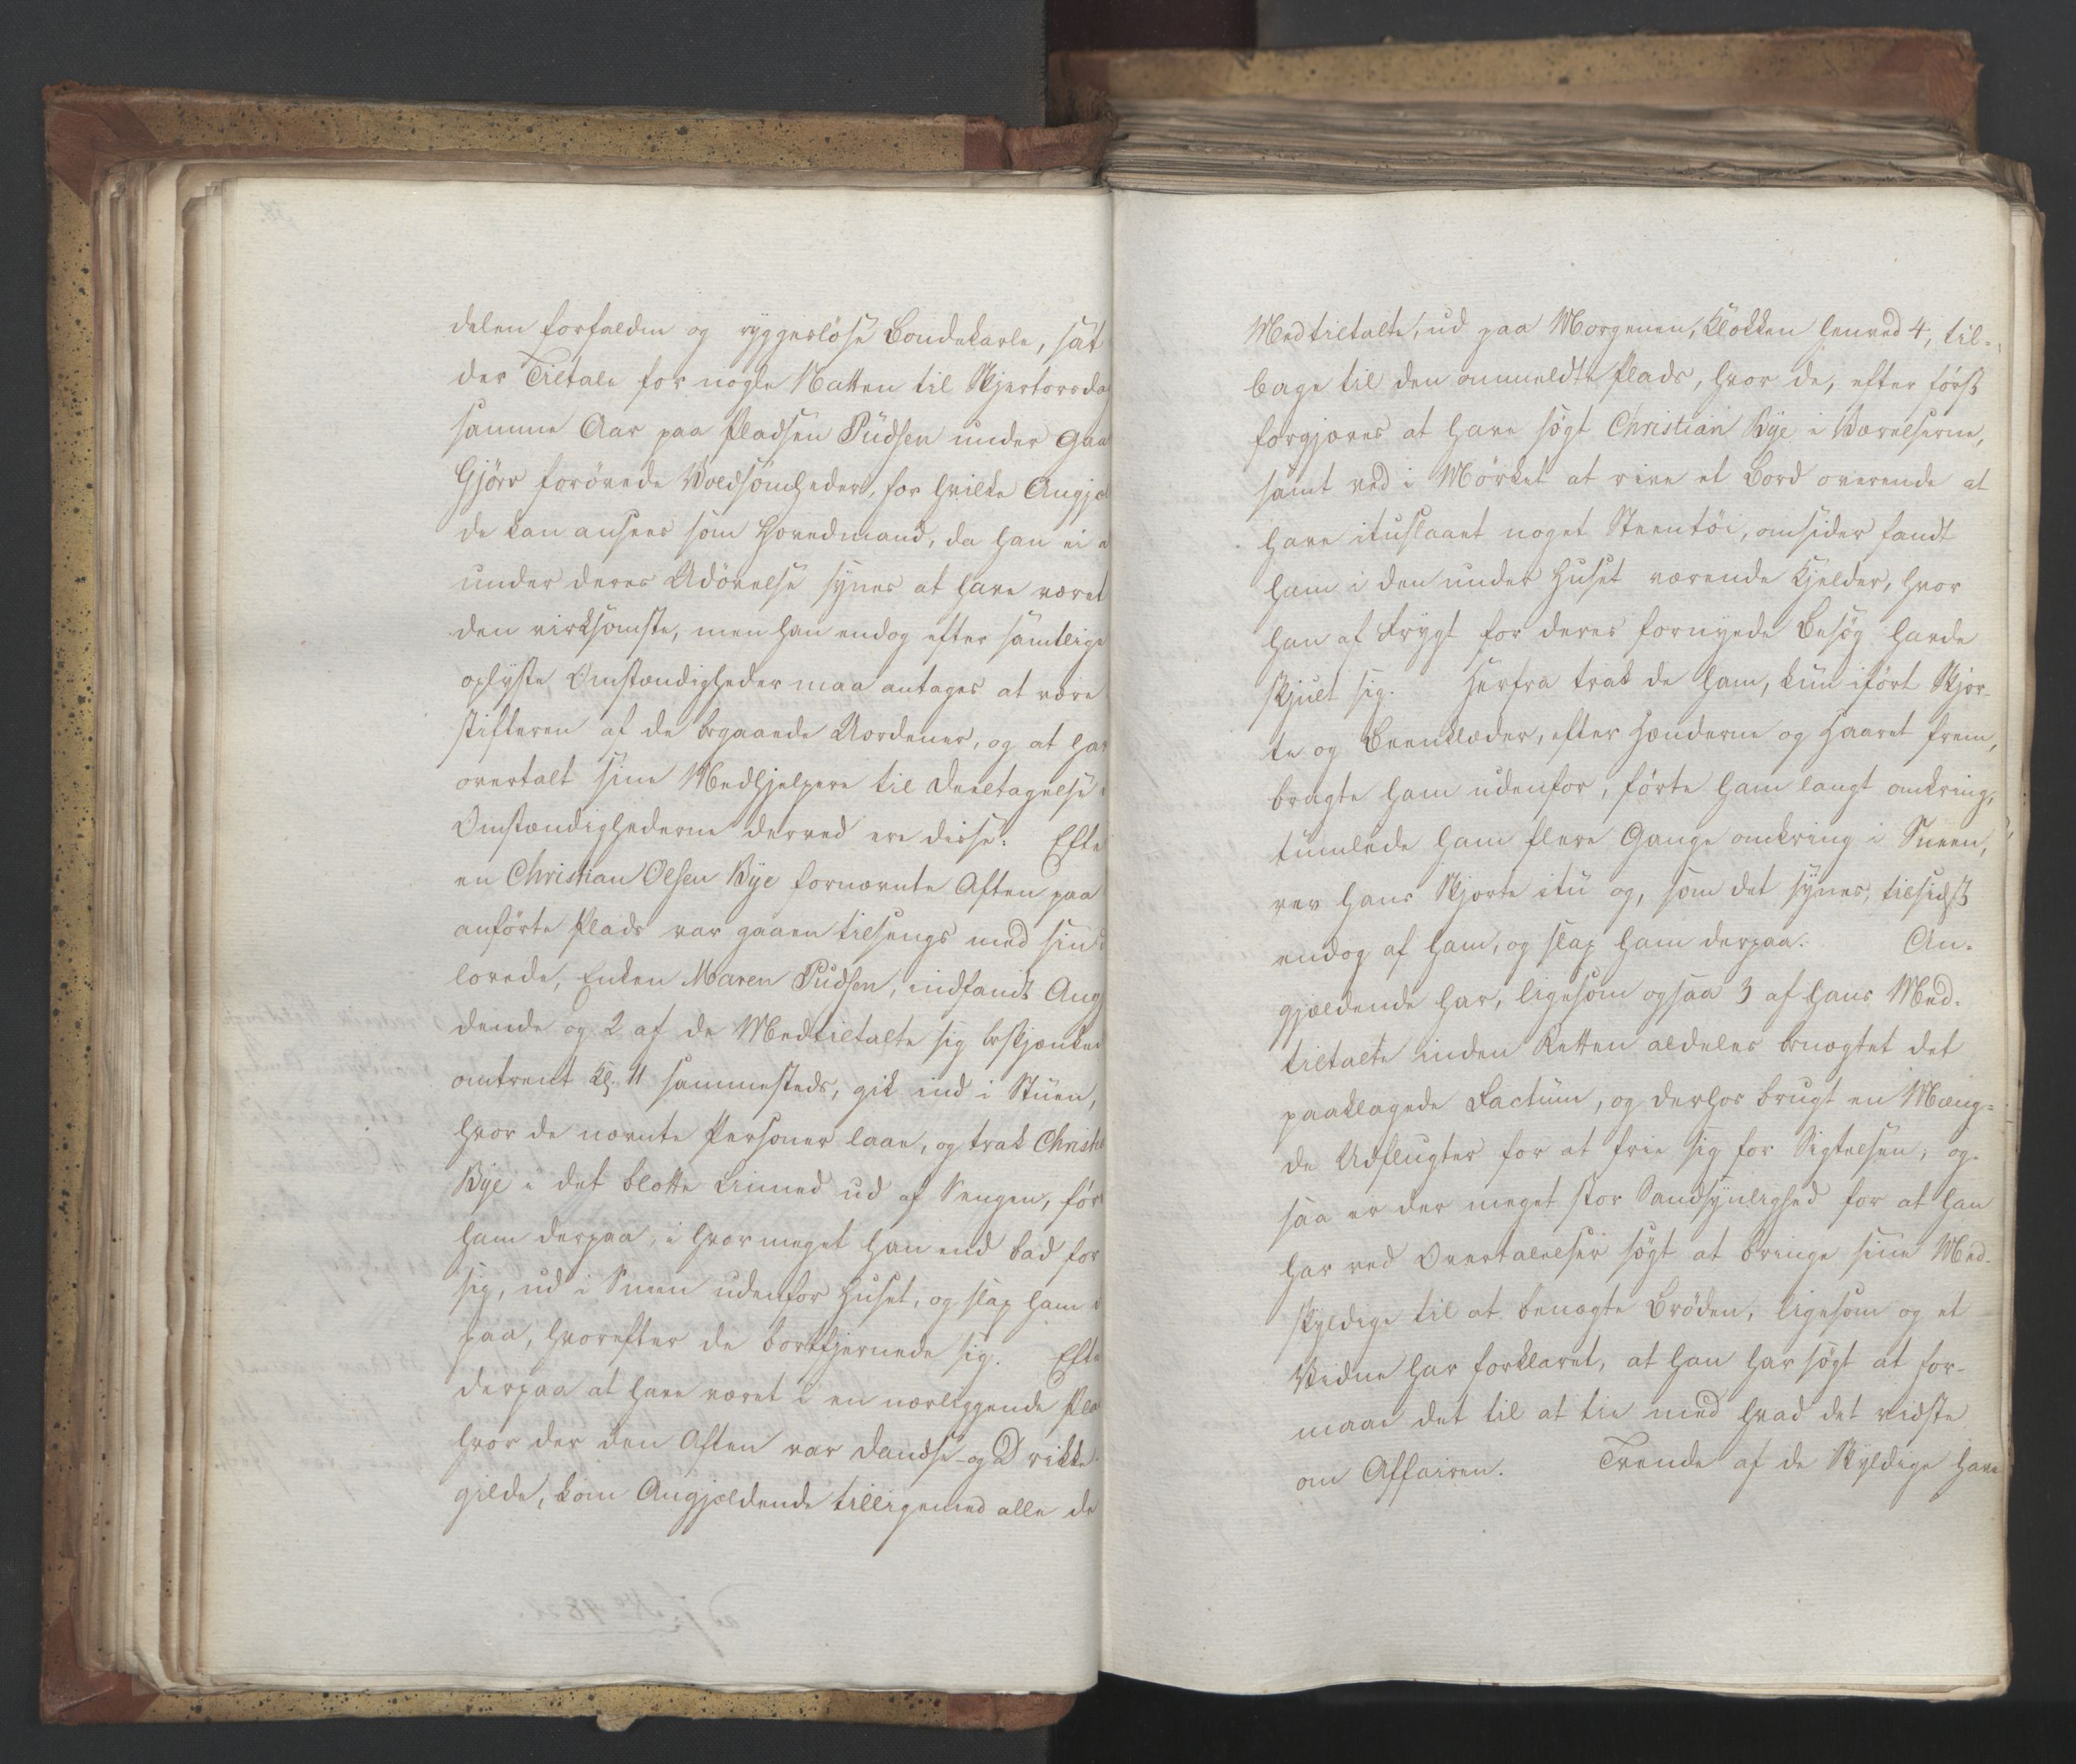 delen forfalden og ryggesløse Bondekarle, sat
der Tiltale for nogle Natten til Skjertorsdag
samme Aar paa Pladsen Püdsen under Gaa
Gjörv forövede Voldsomheder, for hvilke Angjæl
de kan ansees som Hovedmand, da han ei a
under deres Udövelse synes at have været
den virksomste, men han endog efter samtlige
oplyste Omstændigheder maa antages at være
stifteren af de begaaede Uordener, og at har
overtalt sine Medhjelpere til Deeltagelse i
Omstændighederne derved ere disse: Efte
en Christian Olsen Bye fornævnte Aften paa
anförte Plads var gaaen tilsengs med sin
lovede, Enken Maren Püdsen, indfandt Ang
dende og 2 af de Medtiltalte sig beskjænked
omtrent Kl. 11 sammesteds, gik ind i Stüen,
hvor de nævnte Personer laae, og trak Christi
Bye i det blotte Linned ud af Sengen, för
ham derpaa, i hvormeget han end bad for
sig, ud i Sneen udenfor Huset, og slap ham d
paa, hvorefter de bortfjernede sig. Efte
derpaa at have været i en nærliggende Pla
hvor der den Aften var Dandse- og Drikke-
gilde, kom Angjældende tilligemed alle de
Medtiltalte, ud paa Morgenen, Klokken henved 4, til-
bage til den ommeldte Plads, hvor de, efter först
forgjæves at have sögt Christian Bye i Værelserne,
samt ved i Mörket at rive et Bord overende at
have ituslaaet noget Steentöi, omsider fandt
ham i den under Huset værende Kjelder, hvor
han af Frygt for deres fornyede Besög havde
skjult sig. Herfra trak de ham, kün iført Skjor-
te og Beenklæder, efter Hænderne og Haaret frem,
bragte ham udenfor, förte ham langt omkring,
tumlede ham flere Gange omkring i Sneen,
rev hans Skjorte itü og, som det synes, tilsidst
endog af ham, og slap ham derpaa. An-
gjældende har, ligesom ogsaa 3 af hans Med-
tiltalte inden Retten aldeles benægtet det
paaklagede Factüm, og derhos brugt en Mæng-
de Udflugter for at frie sig for Sigtelsen; og-
saa er der meget stor Sandsynlighed for at han
har ved Overtalelser sögt at bringe sine Med-
skyldige til at benægte Bröden, ligesom og et
Vidne har forklaret, at han har sögt at for-
maae det til at tie med hvad det vidste
om Affairen. Trende af de Skyldige have